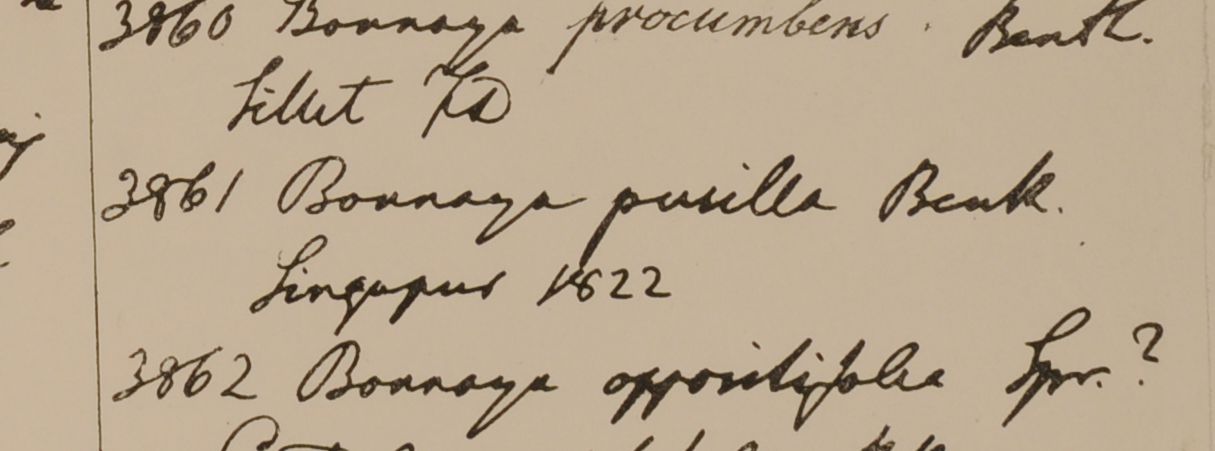 3860 Bonnaya procumbens. Benth.
Sillet FD
3861 Bonnaya pusilla Benth.
Singapur 1822
3862 Bonnaya oppositifolia Spr.?